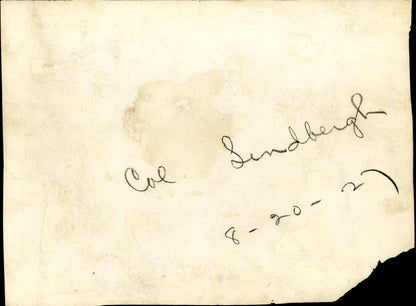 Col. Lindbergh
8-20-27